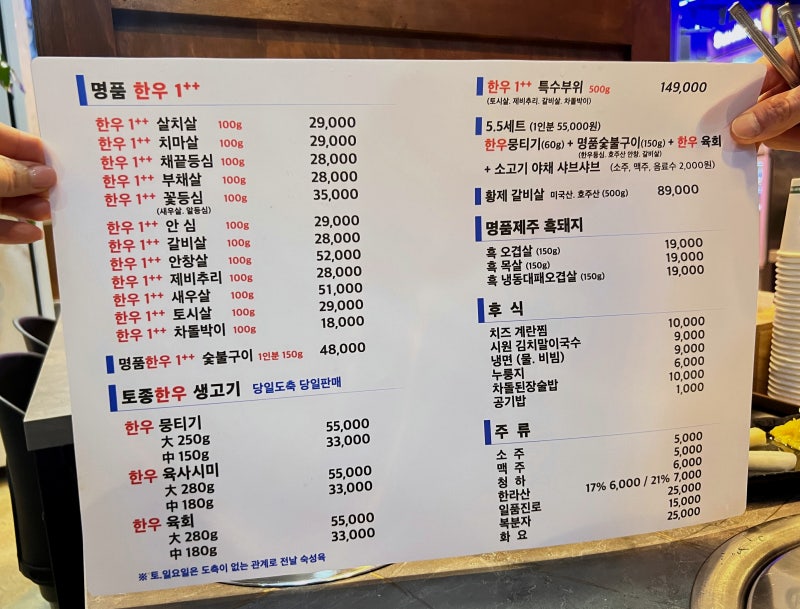 명품 한우 1++
한우 1++ 살치살 100g 29,000
한우 1++ 치마살 100g 29,000
한우 1++ 채끝등심 100g 28,000
한우 1++ 부채살 100g 28,000
한우 1++ 꽃등심 100g 35,000
(새우살. 알등심)
한우 1++ 안 심 100g 29,000
한우 1++ 갈비살 100g 28,000
한우 1++ 안창살 100g 52,000
한우 1++ 제비추리 100g 28,000
한우 1++ 새우살 100g 51,000
한우 1++ 토시살 100g 29,000
한우 1++ 차돌박이 100g 18,000
명품한우 1++ 숯불구이 1인분 150g 48,000
토종한우 생고기 당일도축 당일판매
한우 뭉티기
大 250g 55,000
中 150g 33,000
한우 육사시미
大 280g 55,000
中 180g 33,000
한우 육회
大 280g 55,000
中 180g 33,000
※ 토.일요일은 도축이 없는 관계로 전날 숙성육
한우 1++ 특수부위 500g 149,000
(토시살. 제비추리. 갈비살. 차돌박이)
5.5세트 (1인분 55,000원)
한우뭉티기(60g) + 명품숯불구이(150g) + 한우 육회
(한우등심, 호주산 안창, 갈비살)
+ 소고기 야채 샤브샤브 (소주, 맥주, 음료수 2,000원)
황제 갈비살 미국산. 호주산 (500g) 89,000
명품제주 흑돼지
흑 오겹살 (150g) 19,000
흑 목살 (150g) 19,000
흑 냉동대패오겹살 (150g) 19,000
후 식
치즈 계란찜 10,000
시원 김치말이국수 9,000
냉면 (물. 비빔) 9,000
누룽지 6,000
차돌된장술밥 10,000
공기밥 1,000
주 류
소 주 5,000
맥 주 5,000
청 하 6,000
한라산 17% 6,000 / 21% 7,000
일품진로 25,000
복분자 15,000
화 요 25,000